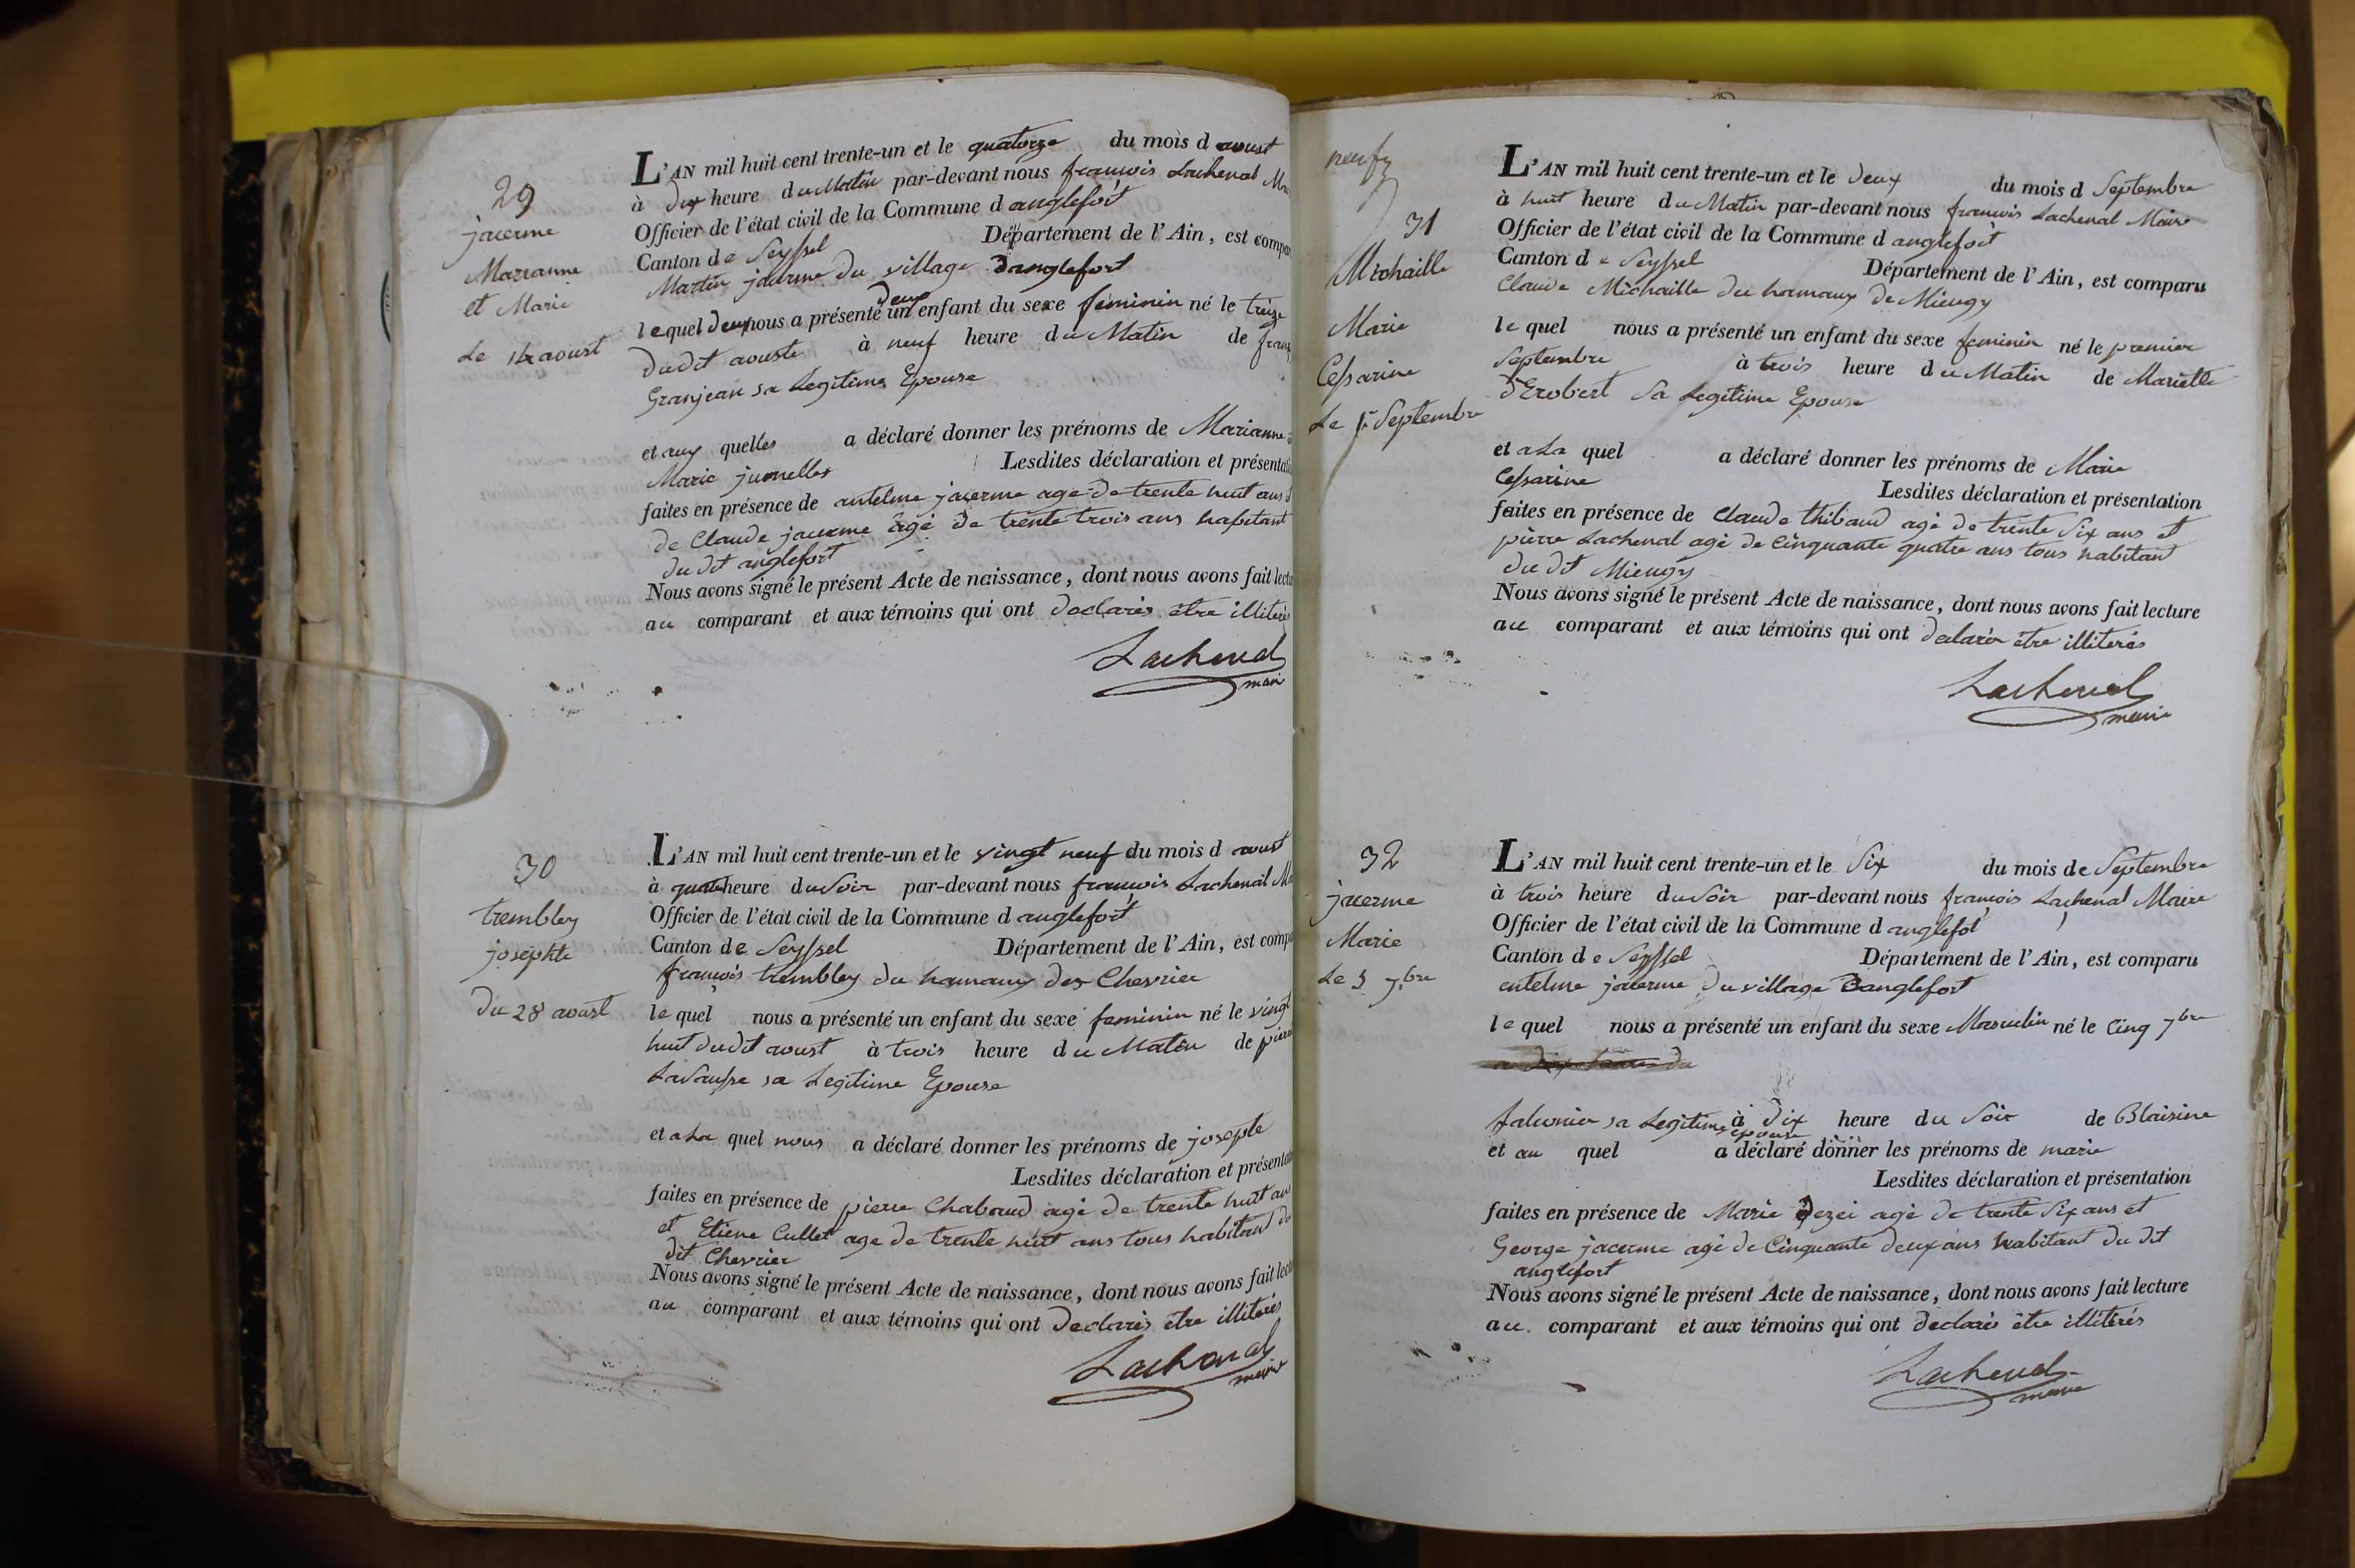 29
jacerme
Marianne
et Marie
Le 14 aoust
L'AN mil huit cent trente-un et le quatorze du mois d aoust
à dix heure du Matin par-devant nous françois Lachenal
Officier de l'état civil de la Commune d anglefort
Canton de Seyssel Département de l'Ain, est
Martin jacerme du village danglefort
deux
lequel deux nous a présenté un enfant du sexe feminin né le treize
dudit aouste à neuf heure du Matin de
Granjean sa Legitime Epouse
et aux quelles a déclaré donner les prénoms de Marianne
Marie jumelles Lesdites déclaration et
faites en présence de antelme jacerme age de trente huit ans
de Claude jacerme âgé de trente trois ans habitant
du dit anglefort
Nous avons signé le présent Acte de naissance, dont nous avons fait
au comparant et aux témoins qui ont declarés être illiterés
Lachenal
maire
30
trembley
josephte
du 28 aoust
L'AN mil huit cent trente-un et le vingt neuf du mois d aoust
à quatre heure du Soir par-devant nous françois Lachenal
Officier de l'état civil de la Commune d anglefort
Canton de Seyssel Département de l'Ain, est
françois trembley du hamaux des Chevrier
le quel nous a présenté un enfant du sexe feminin né le vingt
huit dudit aoust à trois heure du Matin de
sa Legitime Epouse
et a La quel nous a déclaré donner les prénoms de josephte
Lesdites déclaration et
faites en présence de pierre Chabaud agé de trente huit ans
et Etiene Cullet age de trente huit ans tous habitant du
dit Chevrier
Nous avons signé le présent Acte de naissance, dont nous avons fait
au comparant et aux témoins qui ont declarés être illiterés
Lachenal
maire
neufz
31
Michaille
Marie
Cessarine
Le 1r Septembre
L'AN mil huit cent trente-un et le deux du mois d Septembre
à huit heure du Matin par-devant nous françois Lachenal Maire
Officier de l'état civil de la Commune d anglefort
Canton de Seyssel Département de l'Ain, est comparu
Claude Michaille du hamaux de Mieugy
le quel nous a présenté un enfant du sexe feminin né le premier
Septembre à trois heure du Matin de Mariette
d'Erobert Sa Legitime Epouse
et a La quel a déclaré donner les prénoms de Marie
Cessarine Lesdites déclaration et présentation
faites en présence de Claude thibaud agé de trente Six ans et
pierre Lachenal agé de Cinquante quatre ans tous habitant
du dit Mieugy
Nous avons signé le présent Acte de naissance, dont nous avons fait lecture
au comparant et aux témoins qui ont declarés être illiterés
Lachenal
maire
32
jacerme
Marie
Le 5 7bre
L'AN mil huit cent trente-un et le Six du mois de Septembre
à trois heure du Soir par-devant nous françois Lachenal Maire
Officier de l'état civil de la Commune d anglefot
Canton de Seyssel Département de l'Ain, est comparu
entelme jacerme du village danglefort
le quel nous a présenté un enfant du sexe Masculin né le Cinq 7bre
sa Legitime à dix heure du Soir de Blaisine
epouse
et au quel a déclaré donner les prénoms de marie
Lesdites déclaration et présentation
faites en présence de Marie agé de trente Six ans et
George jacerme agé de Cinquante deux ans habitant du dit
anglefort
Nous avons signé le présent Acte de naissance, dont nous avons fait lecture
au comparant et aux témoins qui ont declarés être illiterés
Lachenal
maire